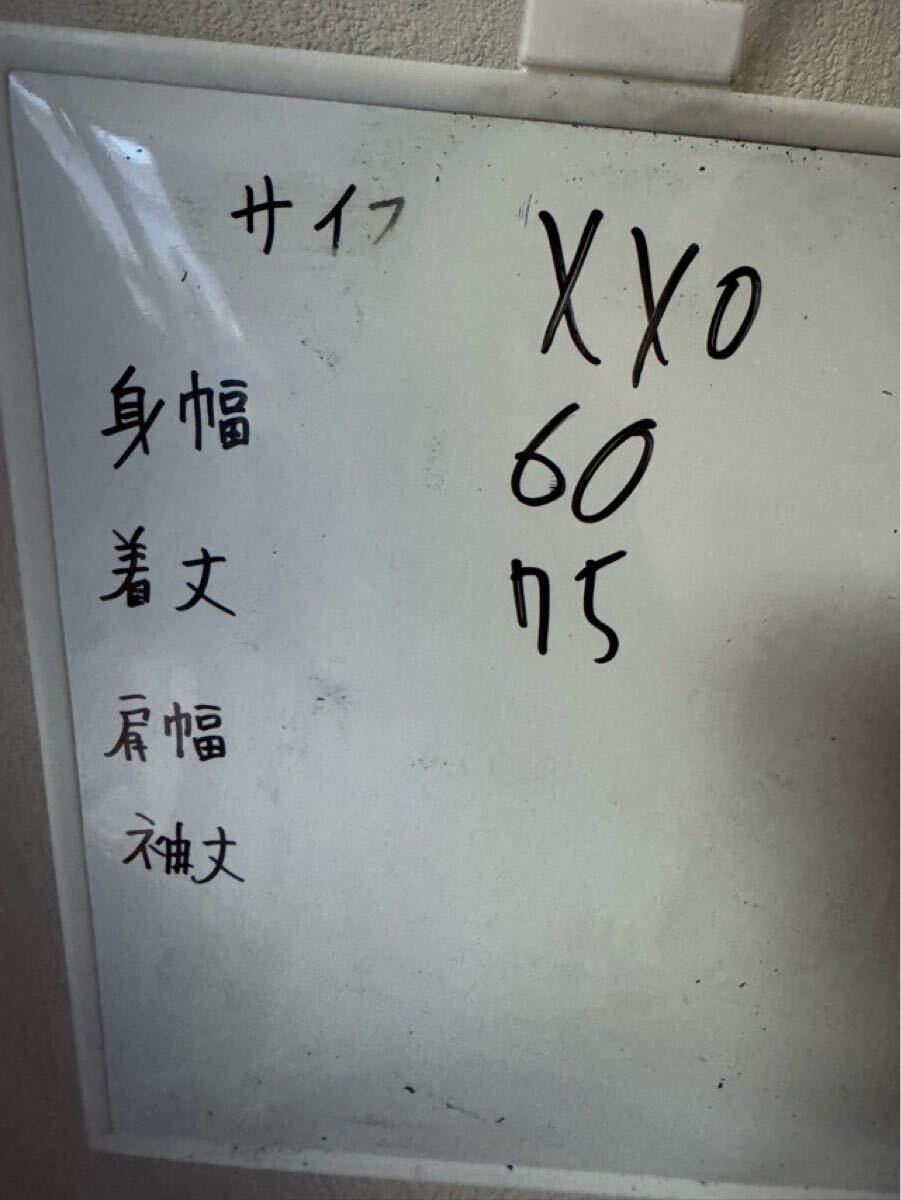 サイフ XXO
身幅 60
着丈 75
肩幅
袖丈